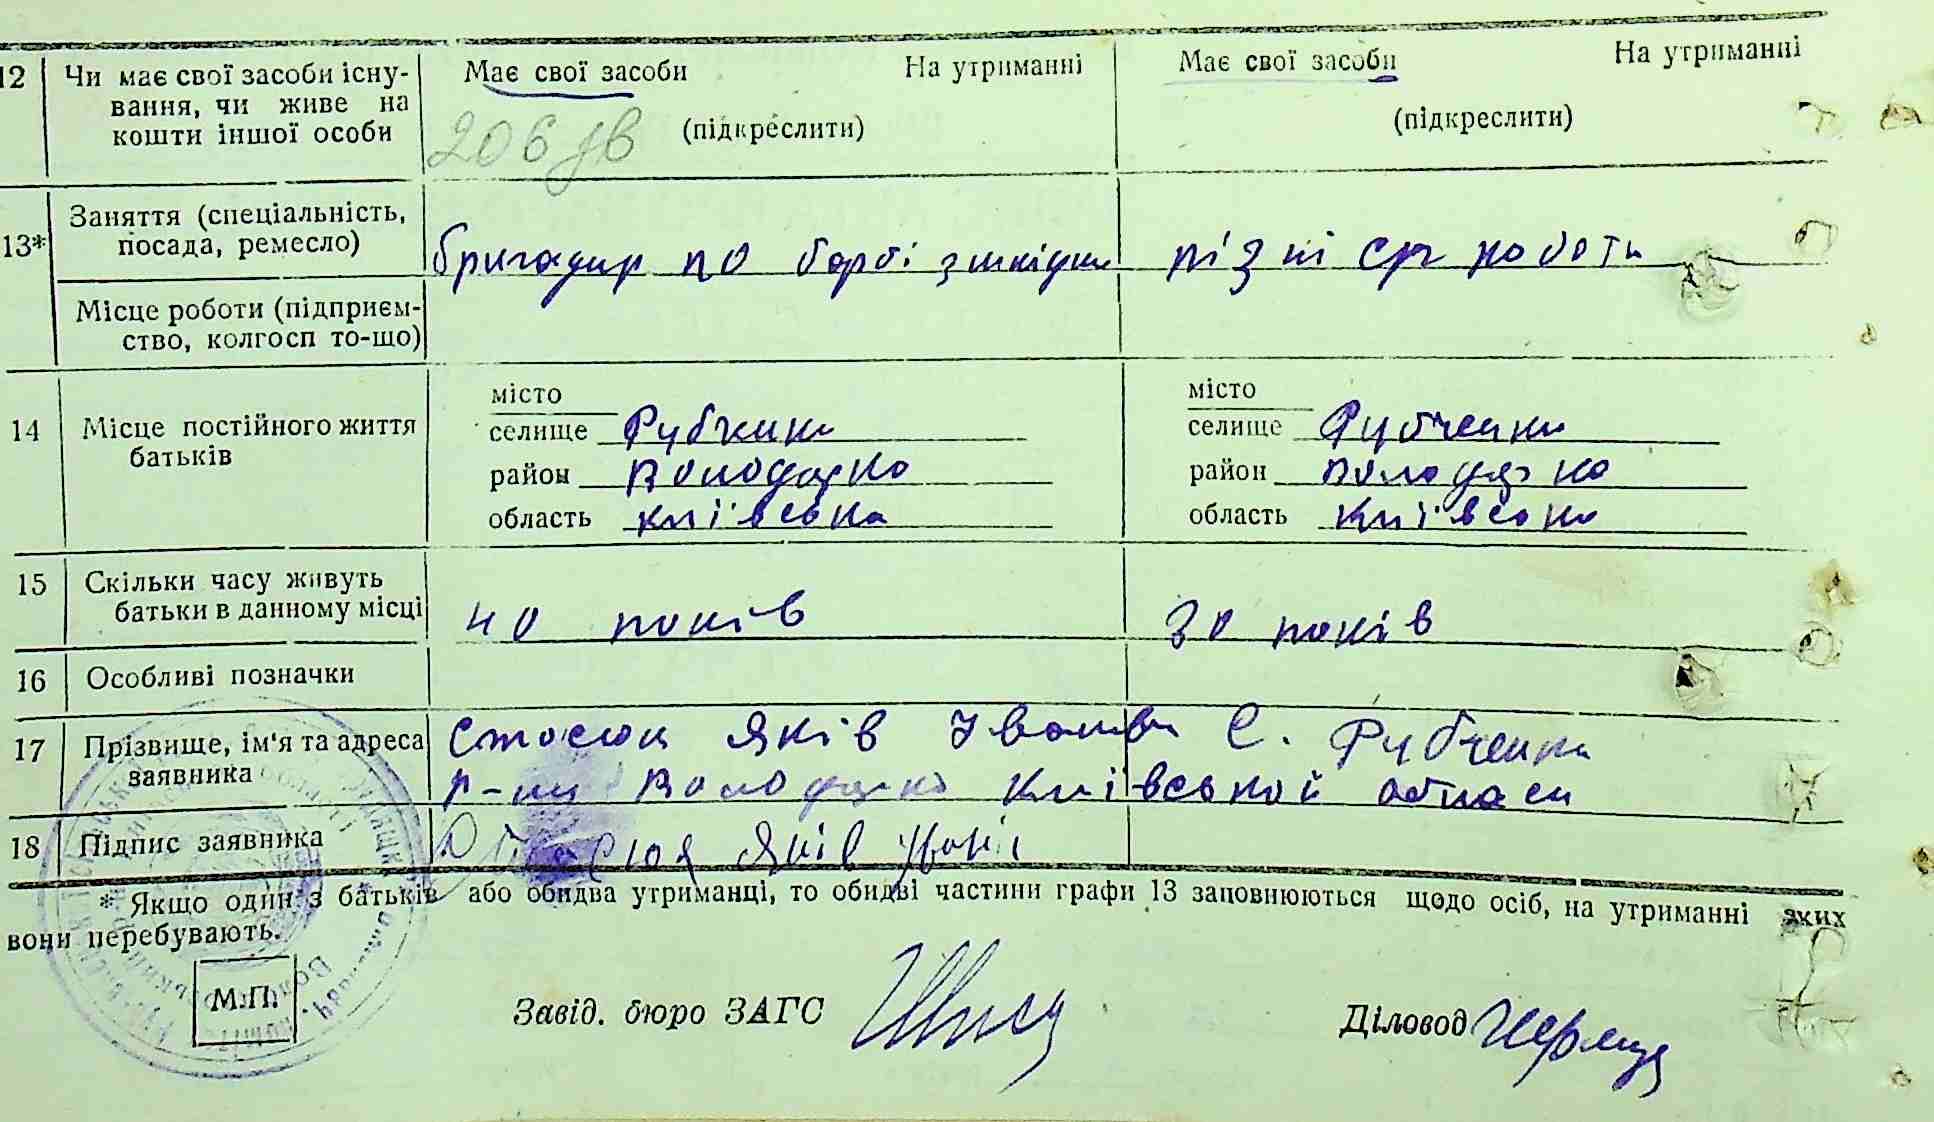 12 Чи має свої засоби існу- Має свої засоби На утриманні Має свої засоби На утриманні
вання, чи живе на
кошти іншої особи 206 (підкреслити) (підкреслити)
Заняття (спеціальність,
13* посада, ремесло) бригадир по борбі зшкідни різні с/г роботи
Місце роботи (підприєм-
ство, колгосп то-що)
місто місто
14 Місце постійного життя селище Рубченки селище Рубченки
батьків район Володарко район Володарко
область київська область київська
15 Скільки часу живуть
батьки в данному місці 40 років 30 років
16 Особливі позначки
17 Прізвище, ім'я та адреса Стасюк Яків Іванов С. Рубченки
заявника р-ну Володарко Київської област
18 Підпис заявника Стасюк Яків Іванов
* Якщо один з батьків або обидва утриманці, то обидві частини графи 13 заповнюються щодо осіб, на утриманні яких
вони перебувають.
М.П.
Завід. бюро ЗАГС Діловод